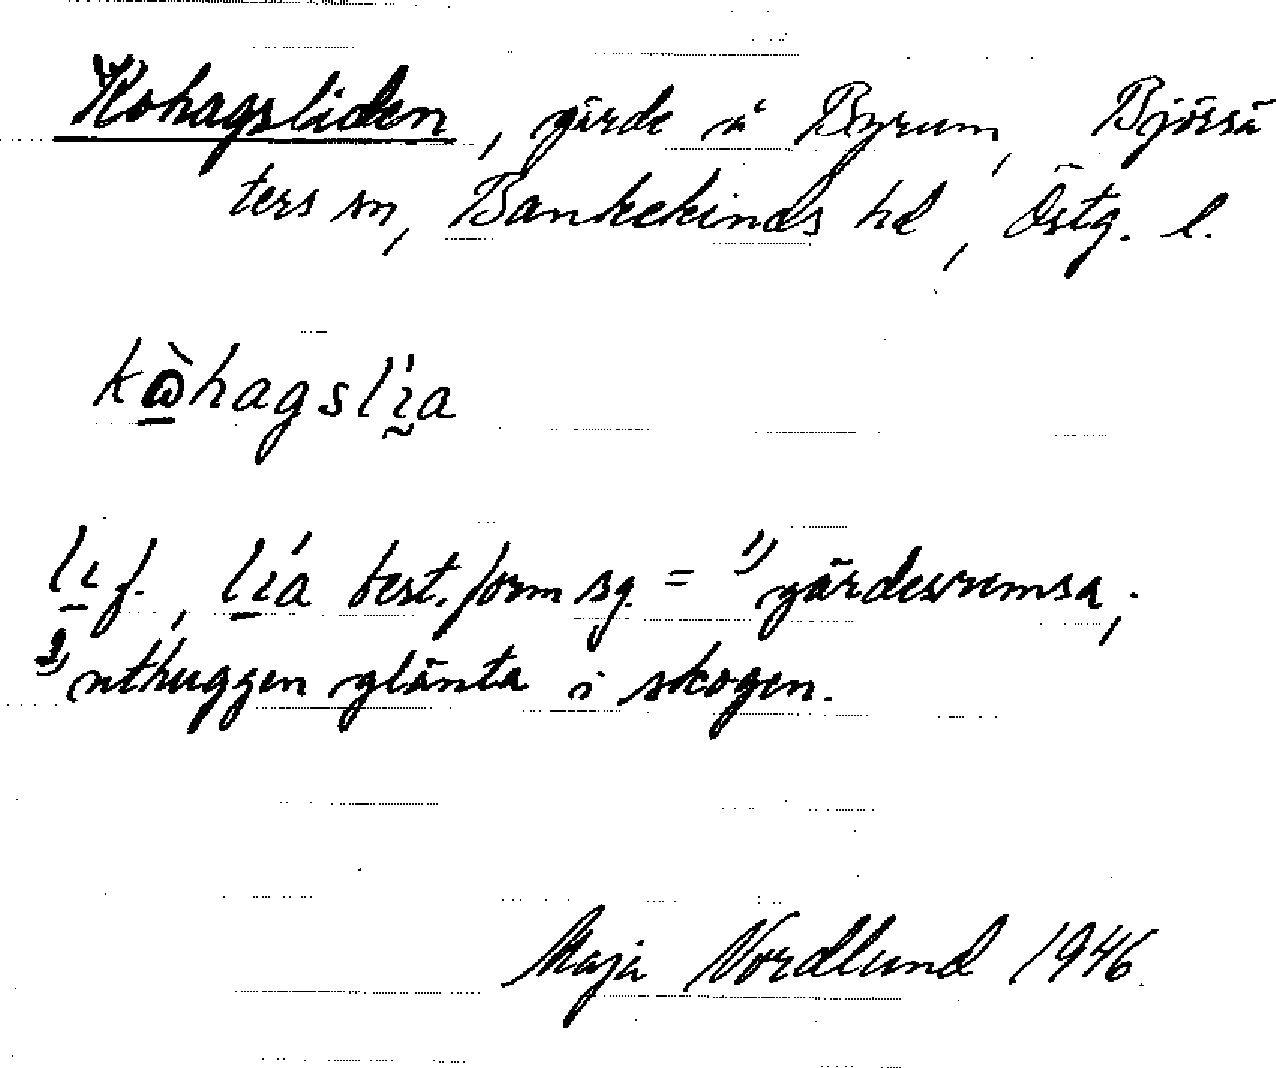 Kohagsliden, gärde å Byrum, Björsä
ters sn, Bankekinds hd, Östg. l.
kὼhagslı̰́a
lı̱ f., lı̱á best. form sg. = 1) gärdesremsa;
2) uthuggen glänta i skogen.
Maja Nordlund 1946.